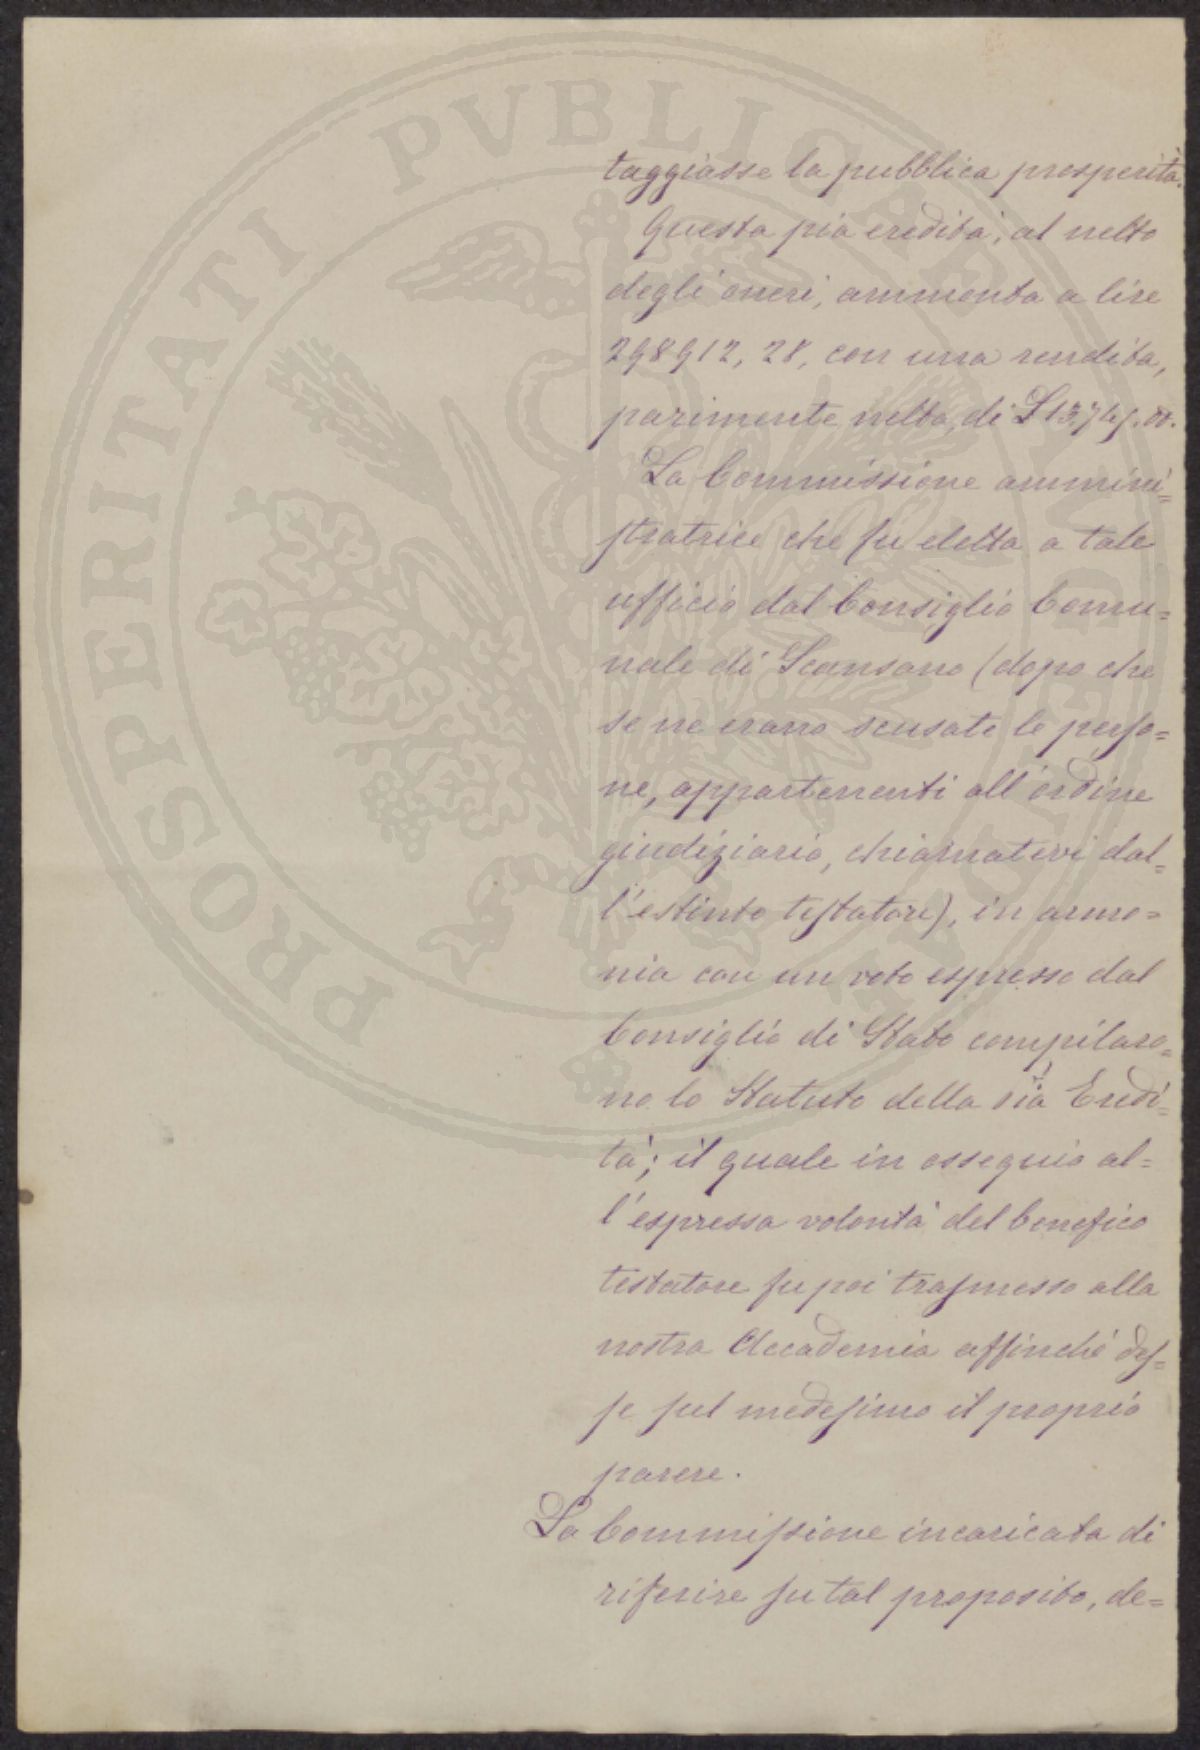 PROSPERITATI PVBLICAE AVGENDAE
taggiasse la pubblica prosperità.
Questa pia eredità, al netto
degli oneri, ammonta a lire
298912, 28, con una rendita,
parimente netta, di £
La Commissione ammini=
stratrice che fu eletta a tale
ufficio dal Consiglio Comu=
nale di Scansano (dopo che
se ne erano scusate le perso=
ne, appartenenti all'ordine
giudiziario, chiamatevi dal=
l'estinto testatore), in armo=
nia con un voto espresso dal
Consiglio di Stato compilaro=
no lo Statuto della pia Eredi=
tà; il quale in ossequio al=
l'espressa volontà del benefico
testatore fu poi trasmesso alla
nostra Accademia affinché des=
se sul medesimo il proprio
parere.
La Commissione incaricata di
riferire su tal proposito, de=